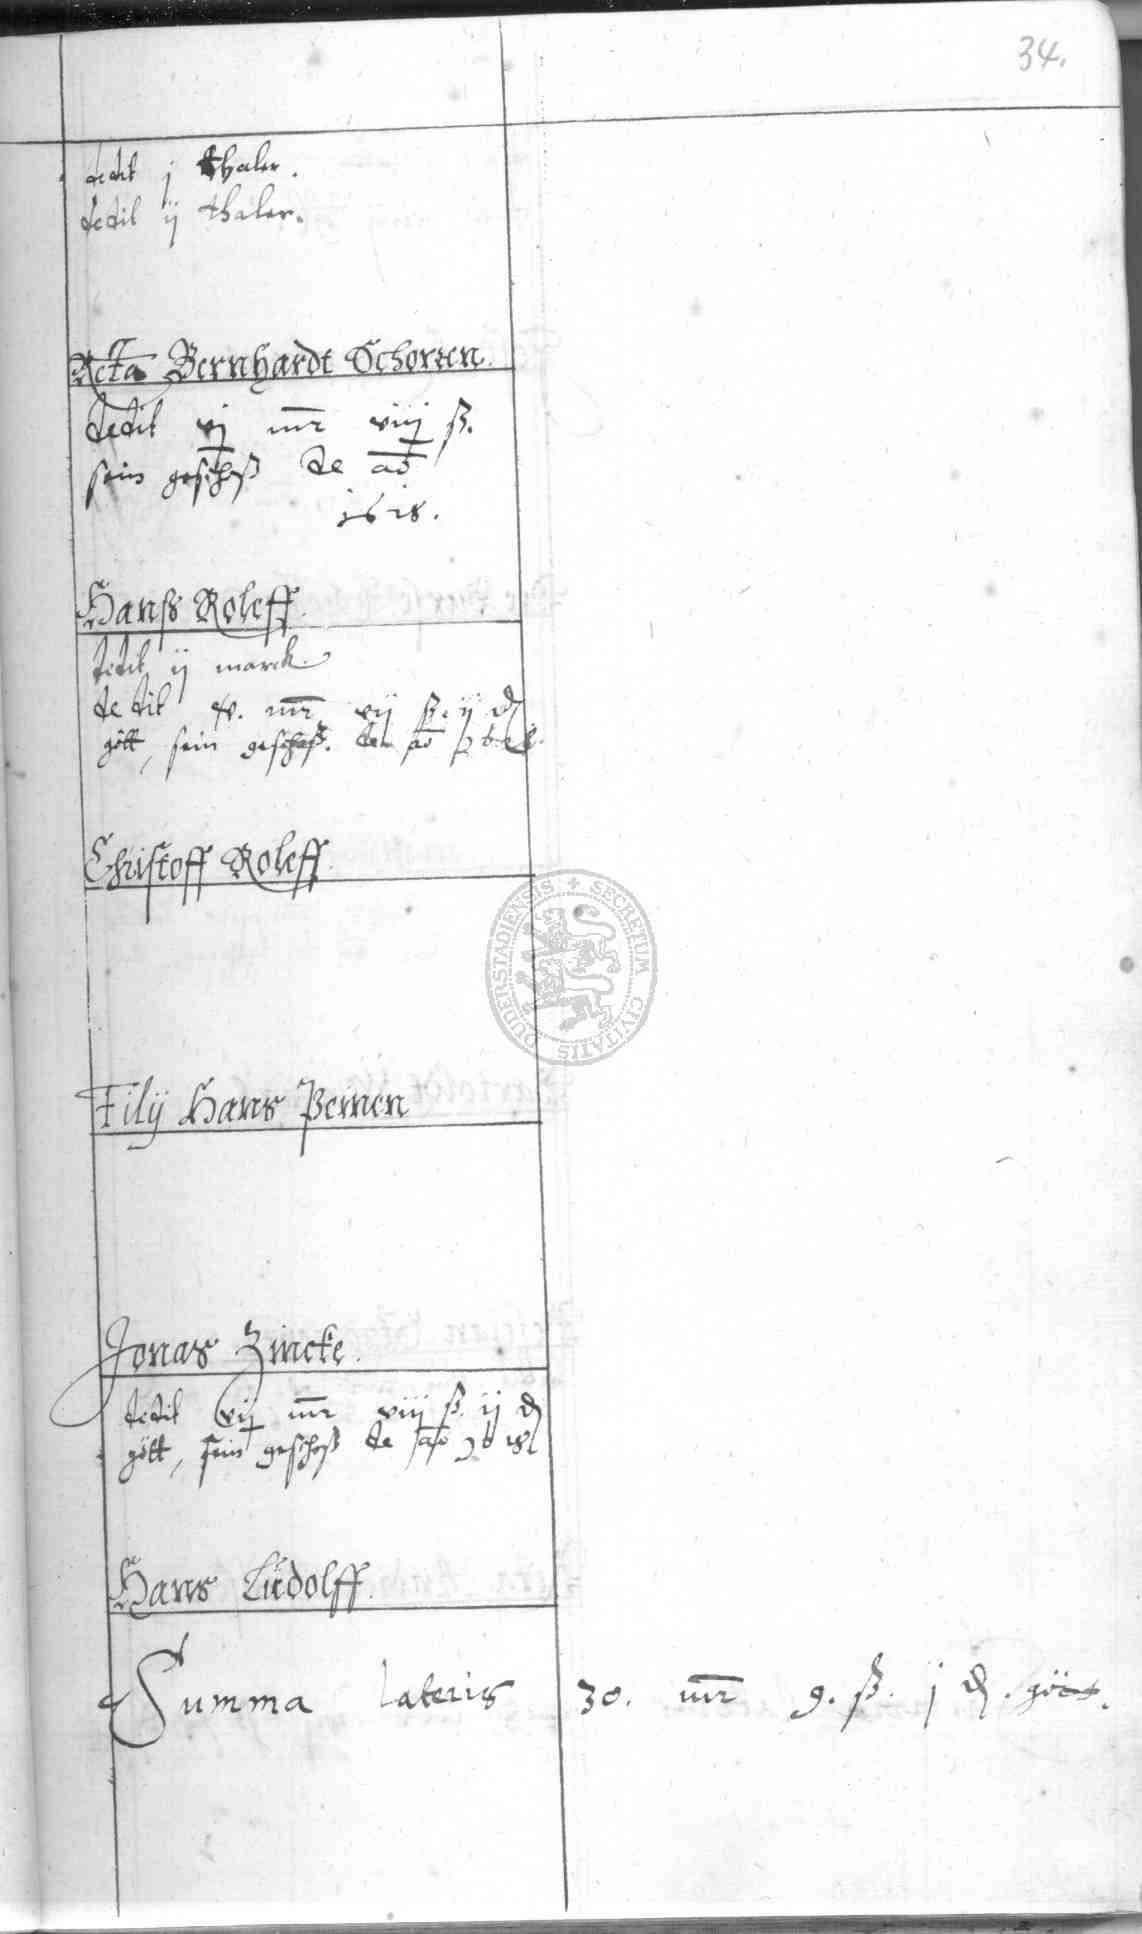 34.
dedit j thaler.
dedit ij thaler.
Rcta Bernhardt Schorren.
dedit vj mr viiij ß.
sein geschoß de ao
1618.
Hanß Roleff.
dedit ij marck.
dedit mr vij ß. ij ₰
gött, sein geschoß. de ao
Christoff Roleff.
Filij Hans Peinen
Jonas Zincke.
dedit vij mr viij ß. ij ₰
gött, sein geschoß de ao 1618
Hans Lüdolff.
Summa lateris 30. mr 9. ß. j ₰. gött.
SECRETUM CIVITATIS DUDERSTADIENSIS